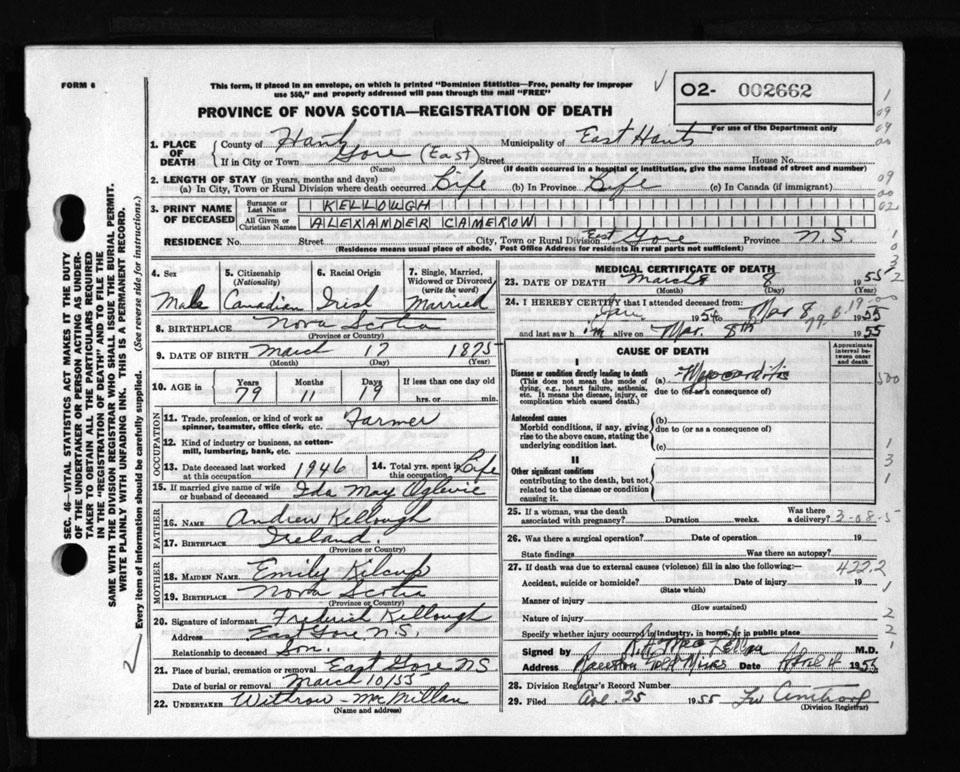 FORM 6
This form, if placed in an envelope, on which is printed "Dominion Statistics—Free, penalty for improper
use $50," and properly addressed will pass through the mail "FREE"
O2- 002662
For use of the Department only
PROVINCE OF NOVA SCOTIA—REGISTRATION OF DEATH
1. PLACE OF DEATH
County of Hants Municipality of East Hants
If in City or Town Gore (East) Street House No.
(Name) (If death occurred in a hospital or institution, give the name instead of street and number)
2. LENGTH OF STAY (in years, months and days)
(a) In City, Town or Rural Division where death occurred Life (b) In Province Life (c) In Canada (if immigrant)
3. PRINT NAME OF DECEASED
Surname or Last Name KELLOUGH
All Given or Christian Names ALEXANDER CAMERON
RESIDENCE No. Street City, Town or Rural Division East Gore Province N.S.
(Residence means usual place of abode. Post Office Address for residents in rural parts not sufficient)
4. Sex Male
5. Citizenship (Nationality) Canadian
6. Racial Origin Irish
7. Single, Married, Widowed or Divorced (write the word) Married
8. BIRTHPLACE Nova Scotia
(Province or Country)
9. DATE OF BIRTH March 17 1875
(Month) (Day) (Year)
10. AGE in Years 79 Months 11 Days 19 If less than one day old hrs. or min.
OCCUPATION
11. Trade, profession, or kind of work as spinner, teamster, office clerk, etc. Farmer
12. Kind of industry or business, as cotton-mill, lumbering, bank, etc.
13. Date deceased last worked at this occupation 1946
14. Total yrs. spent in this occupation Life
15. If married give name of wife or husband of deceased Ida May
FATHER
16. NAME Andrew Kellough
17. BIRTHPLACE Ireland.
(Province or Country)
MOTHER
18. MAIDEN NAME Emily Kilcup
19. BIRTHPLACE Nova Scotia
(Province or Country)
20. Signature of informant Frederick Kellough
Address East Gore, N.S.
Relationship to deceased Son.
21. Place of burial, cremation or removal East Gore NS
Date of burial or removal March 10/55
22. UNDERTAKER Withrow McMillan
(Name and address)
MEDICAL CERTIFICATE OF DEATH
23. DATE OF DEATH March 8 1955
(Month) (Day) (Year)
24. I HEREBY CERTIFY that I attended deceased from:
Jan 1954 to Mar 8, 1955
and last saw him alive on Mar. 8th 1955
CAUSE OF DEATH
Approximate interval between onset and death
I
Disease or condition directly leading to death
(This does not mean the mode of dying, e.g., heart failure, asthenia, etc. It means the disease, injury, or complication which caused death.)
(a) Myocarditis
due to (or as a consequence of)
Antecedent causes
Morbid conditions, if any, giving rise to the above cause, stating the underlying condition last.
(b)
due to (or as a consequence of)
(c)
II
Other significant conditions
contributing to the death, but not related to the disease or condition causing it.
25. If a woman, was the death associated with pregnancy? Duration weeks. Was there a delivery? 3-08-5
26. Was there a surgical operation? Date of operation 19
State findings Was there an autopsy?
27. If death was due to external causes (violence) fill in also the following:— 422.2
Accident, suicide or homicide? Date of injury 19
(State which)
Manner of injury
(How sustained)
Nature of injury
Specify whether injury occurred in industry, in home, or in public place
Signed by M.D.
Address Date April 4 1955
28. Division Registrar's Record Number
29. Filed 25 1955
(Division Registrar)
SEC. 46—VITAL STATISTICS ACT MAKES IT THE DUTY
OF THE UNDERTAKER OR PERSON ACTING AS UNDER-
TAKER TO OBTAIN ALL THE PARTICULARS REQUIRED
IN THE "REGISTRATION OF DEATH" AND TO FILE THE
SAME WITH THE DIVISION REGISTRAR WHO SHALL ISSUE THE BURIAL PERMIT.
WRITE PLAINLY WITH UNFADING INK. THIS IS A PERMANENT RECORD.
Every item of information should be carefully supplied. (See reverse side for instructions.)